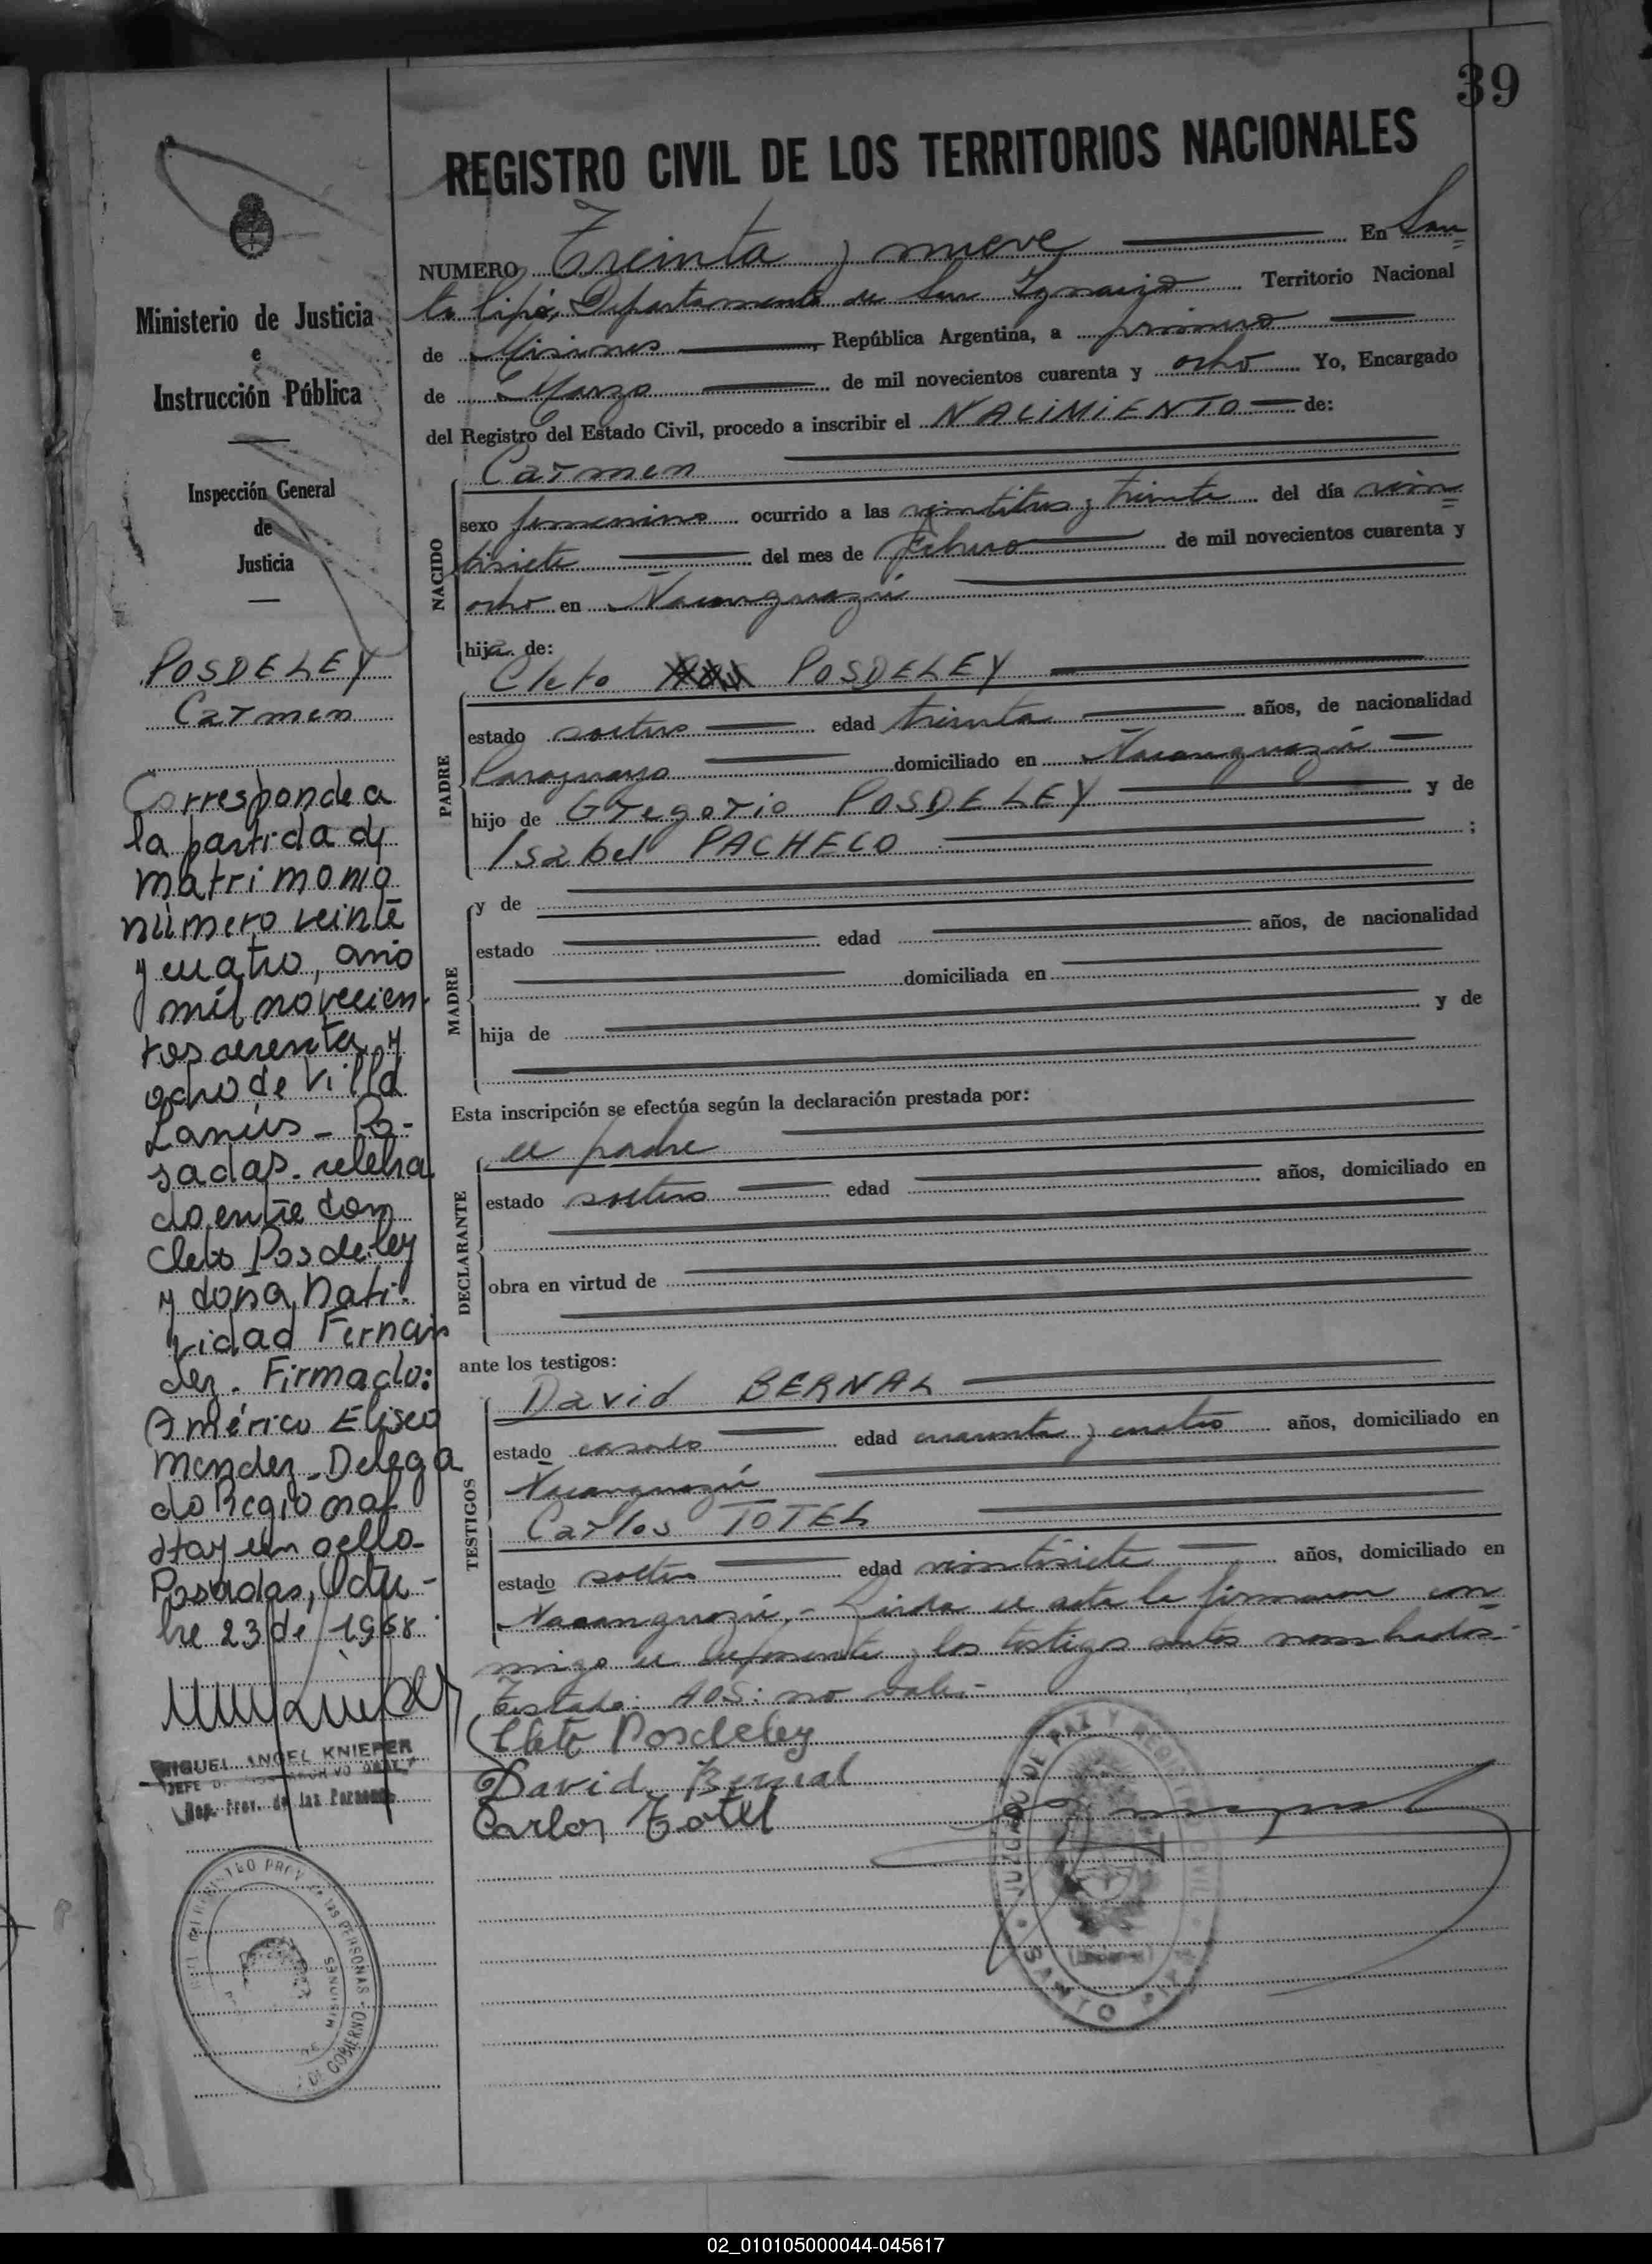 39
REGISTRO CIVIL DE LOS TERRITORIOS NACIONALES
NUMERO Treinta y nueve En San
to Pipó, Departamento de San Ignacio Territorio Nacional
de Misiones, República Argentina, a primero
de Marzo de mil novecientos cuarenta y ocho Yo, Encargado
del Registro del Estado Civil, procedo a inscribir el NACIMIENTO de:
NACIDO
Carmen
sexo femenino ocurrido a las veintitres y treinta del día vein
tisiete del mes de Febrero de mil novecientos cuarenta y
ocho en Ñacanguazú
hija de:
PADRE
Cleto POSDELEY
estado soltero edad treinta años, de nacionalidad
Paraguayo domiciliado en Ñacanguazú
hijo de Gregorio POSDELEY y de
Isabel PACHECO ;
MADRE
y de
estado edad años, de nacionalidad
domiciliada en
hija de y de
Esta inscripción se efectúa según la declaración prestada por:
DECLARANTE
el padre
estado soltero edad años, domiciliado en
obra en virtud de
ante los testigos:
TESTIGOS
David BERNAL
estado casado edad cuarenta y cuatro años, domiciliado en
Ñacanguazú
Carlos TOTEL
estado soltero edad veintisiete años, domiciliado en
Ñacanguazú.- Leida el acta la firmaron con
migo el deponente y los testigos antes nombrados.-
Testado: no vale.-
Cleto Posdeley
David Bernal
Carlos Totel
JUZGADO DE PAZ Y REGISTRO CIVIL
SANTO PIPO
Ministerio de Justicia
e
Instrucción Pública
Inspección General
de
Justicia
POSDELEY
Carmen
Corresponde a
la partida de
matrimonio
número veinte
y cuatro, año
mil novecien
tos cuarenta y
ocho de Villa
Lanús - Po-
sadas. celebra
do entre don
Cleto Posdeley
y doña Nati-
vidad Fernan
dez. Firmado:
Américo Eliseo
Mendez - Delega
do Regional
Hay un sello-
Posadas, Octu-
bre 23 de 1968.
MIGUEL ANGEL KNIEPER
JEFE
Reg. Prov. de las Personas
REGISTRO PROV. DE LAS PERSONAS
MISIONES
DE GOBIERNO
02_010105000044-045617